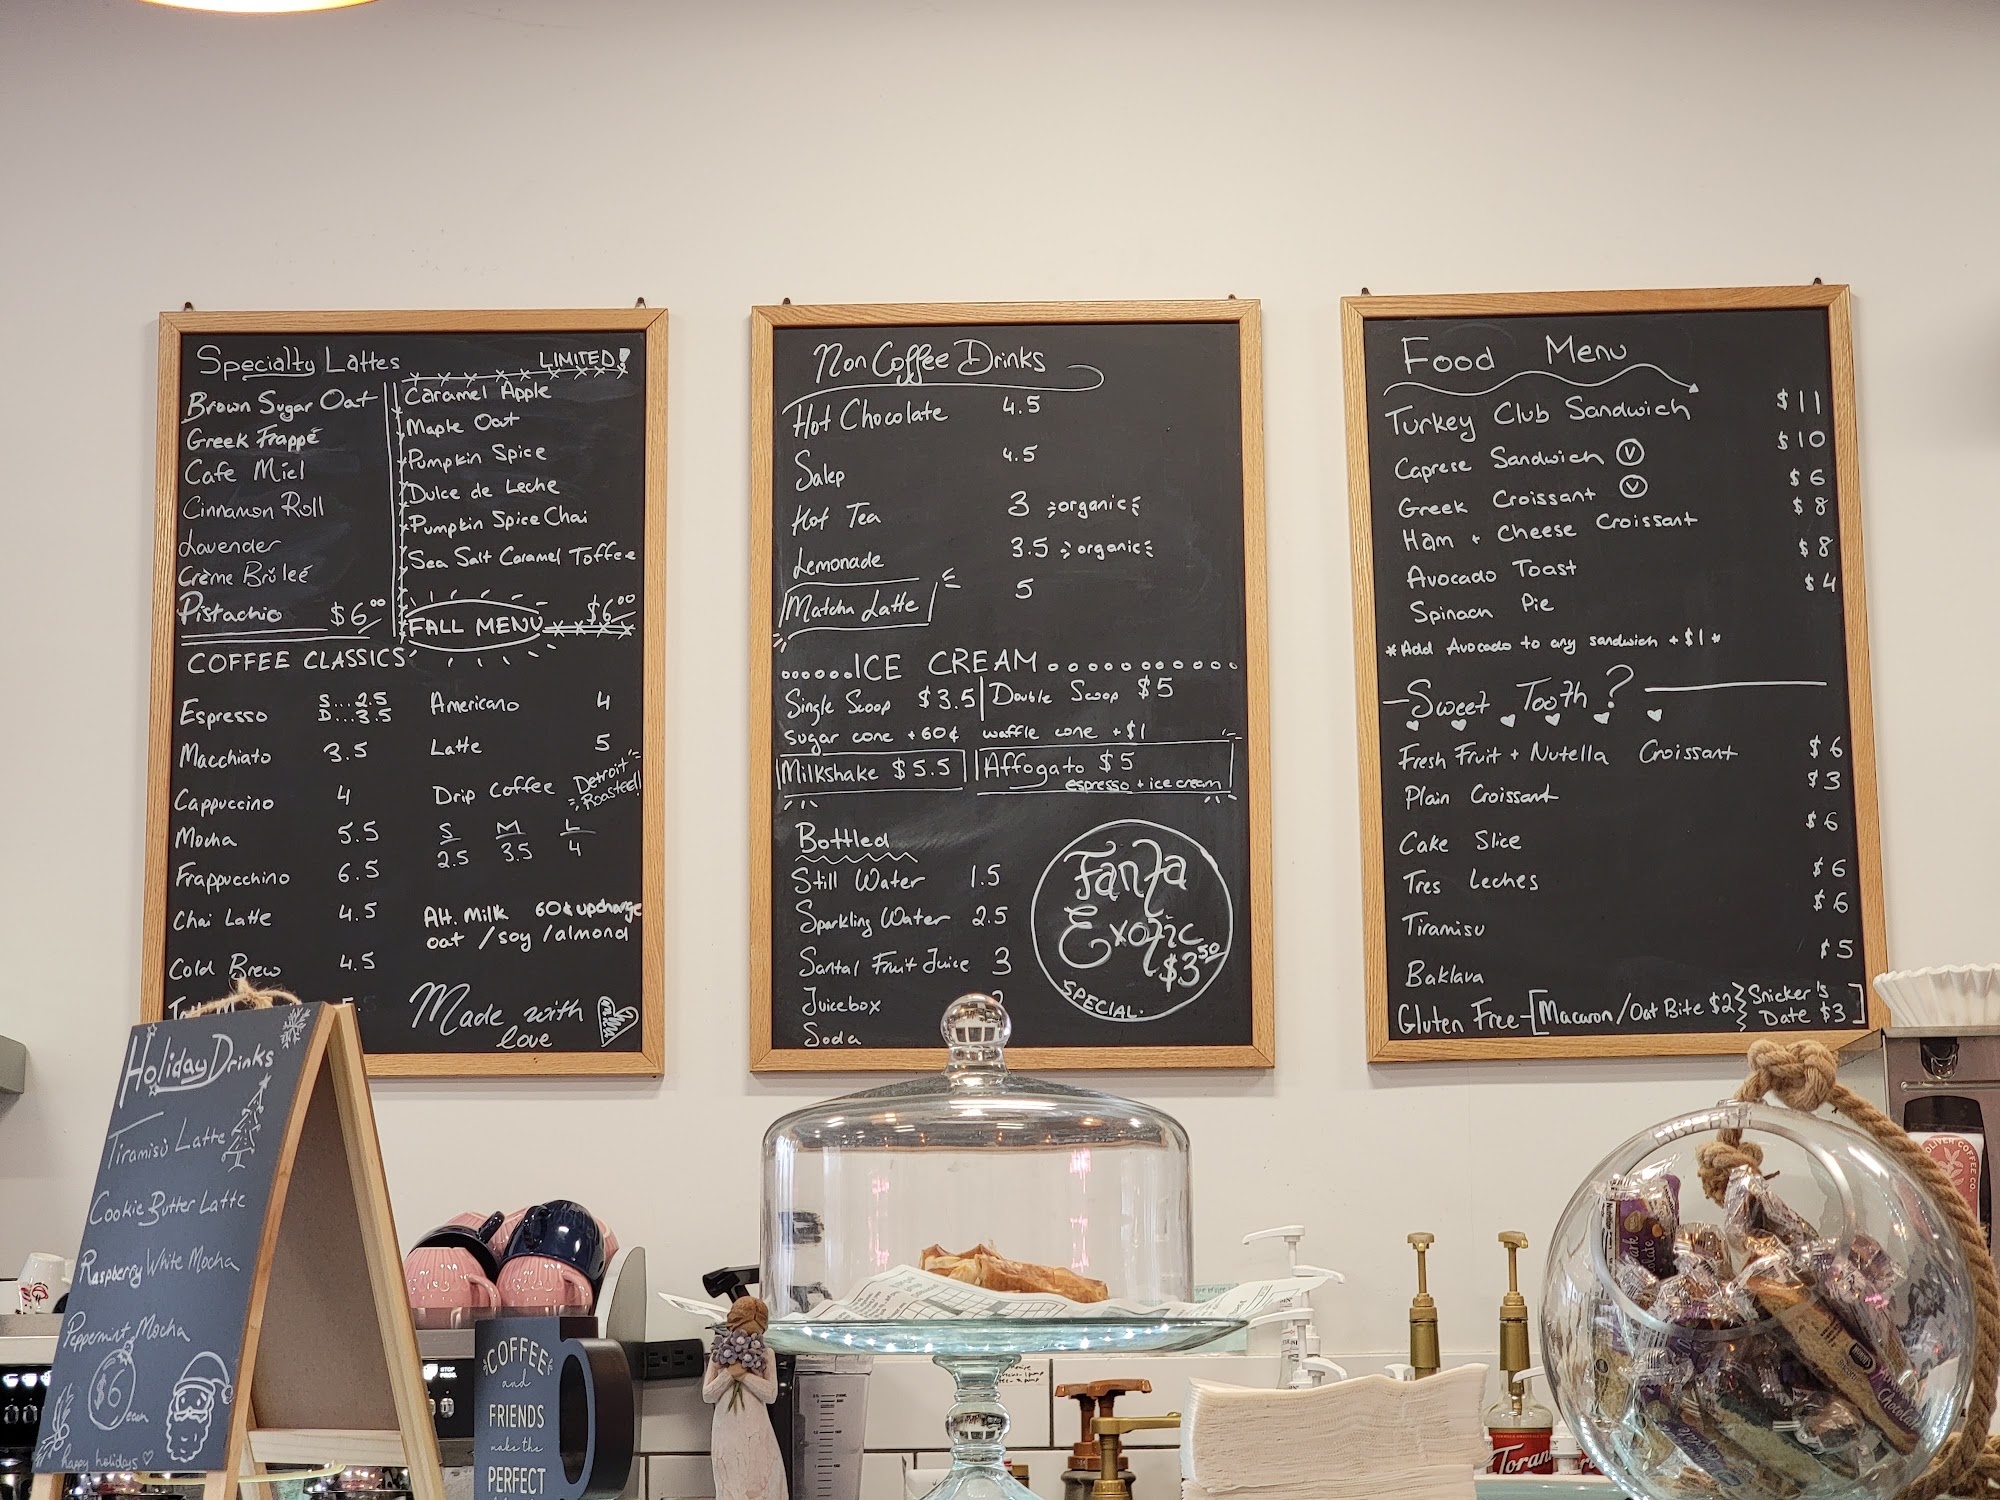 Specialty Lattes
Brown Sugar Oat
Greek Frappé
Cafe Miel
Cinnamon Roll
Lavender
Crème Brûleé
Pistachio $6.00
LIMITED!
Caramel Apple
Maple Oat
Pumpkin Spice
Dulce de Leche
Pumpkin Spice Chai
Sea Salt Caramel Toffee
FALL MENU $6.00
COFFEE CLASSICS
Espresso S...2.5
D...3.5
Macchiato 3.5
Cappuccino 4
Mocha 5.5
Frappucchino 6.5
Chai Latte 4.5
Cold Brew 4.5
Americano 4
Latte 5
Drip Coffee Detroit Roasted!
S M L
2.5 3.5 4
Alt. Milk 60¢ upcharge
oat / soy / almond
Made with
love
Non Coffee Drinks
Hot Chocolate 4.5
Salep 4.5
Hot Tea 3 organic
Lemonade 3.5 organic
Matcha Latte 5
ICE CREAM
Single Scoop $3.5 Double Scoop $5
sugar cone +60¢ waffle cone +$1
Milkshake $5.5 Affogato $5
espresso + ice cream
Bottled
Still Water 1.5
Sparkling Water 2.5
Santal Fruit Juice 3
Juicebox
Soda
Fanta
Exotic
$3.50
SPECIAL.
Food Menu
Turkey Club Sandwich $11
Caprese Sandwich V $10
Greek Croissant V $6
Ham + Cheese Croissant $8
Avocado Toast $8
Spinach Pie $4
*Add Avocado to any sandwich +$1*
Sweet Tooth?
Fresh Fruit + Nutella Croissant $6
Plain Croissant $3
Cake Slice $6
Tres Leches $6
Tiramisu $6
Baklava $5
Gluten Free [Macaron/Oat Bite $2 Snicker's Date $3]
Holiday Drinks
Tiramisù Latte
Cookie Butter Latte
Raspberry White Mocha
Peppermint Mocha
$6
each
happy holidays
COFFEE
and
FRIENDS
make the
PERFECT
Torani
OLIVER COFFEE CO.